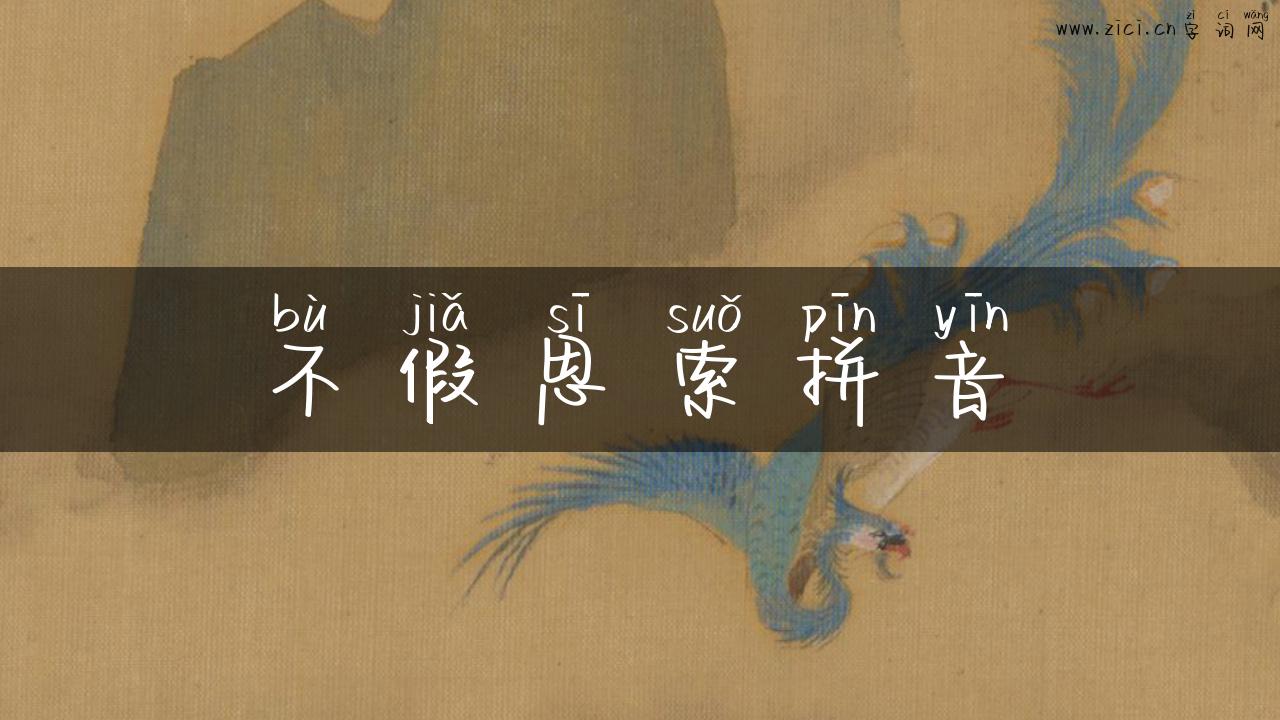 zì cí wǎng
www.zici.cn 字词网
bù jiǎ sī suǒ pīn yīn
不假思索拼音